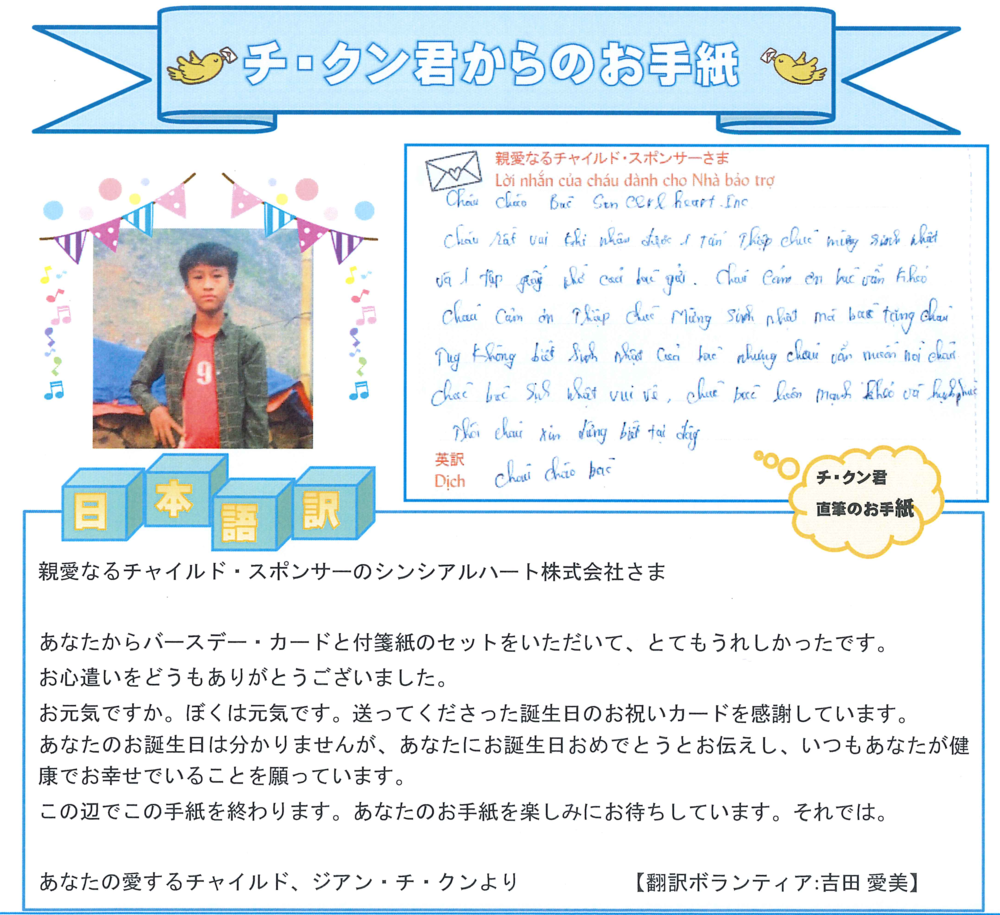 チ・クン君からのお手紙
親愛なるチャイルド・スポンサーさま
Lời nhắn của cháu dành cho Nhà bảo trợ
Cháu chào Bác Sin cerl heart .Inc
Cháu rất vui khi nhân được 1 tấn Thiệp chúc mừng sinh nhật
và 1 tập giấy nhớ của bác gửi. Cháu Cảm ơn bác vẫn Khỏe
Cháu Cảm ơn Thiệp chúc Mừng Sinh nhật mà bác tặng cháu
Tuy Không biết Sinh nhật Của bác nhưng cháu vẫn muốn nói
chúc bác Sinh nhật vui vẻ, chúc bác luôn mạnh khỏe và hạnh phúc
Thôi cháu xin dừng bút tại đây
英訳
Dịch
cháu chào bác
チ・クン君
直筆のお手紙
日本語訳
親愛なるチャイルド・スポンサーのシンシアルハート株式会社さま
あなたからバースデー・カードと付箋紙のセットをいただいて、とてもうれしかったです。
お心遣いをどうもありがとうございました。
お元気ですか。ぼくは元気です。送ってくださった誕生日のお祝いカードを感謝しています。
あなたのお誕生日は分かりませんが、あなたにお誕生日おめでとうとお伝えし、いつもあなたが健
康でお幸せでいることを願っています。
この辺でこの手紙を終わります。あなたのお手紙を楽しみにお待ちしています。それでは。
あなたの愛するチャイルド、ジアン・チ・クンより
【翻訳ボランティア:吉田 愛美】
9